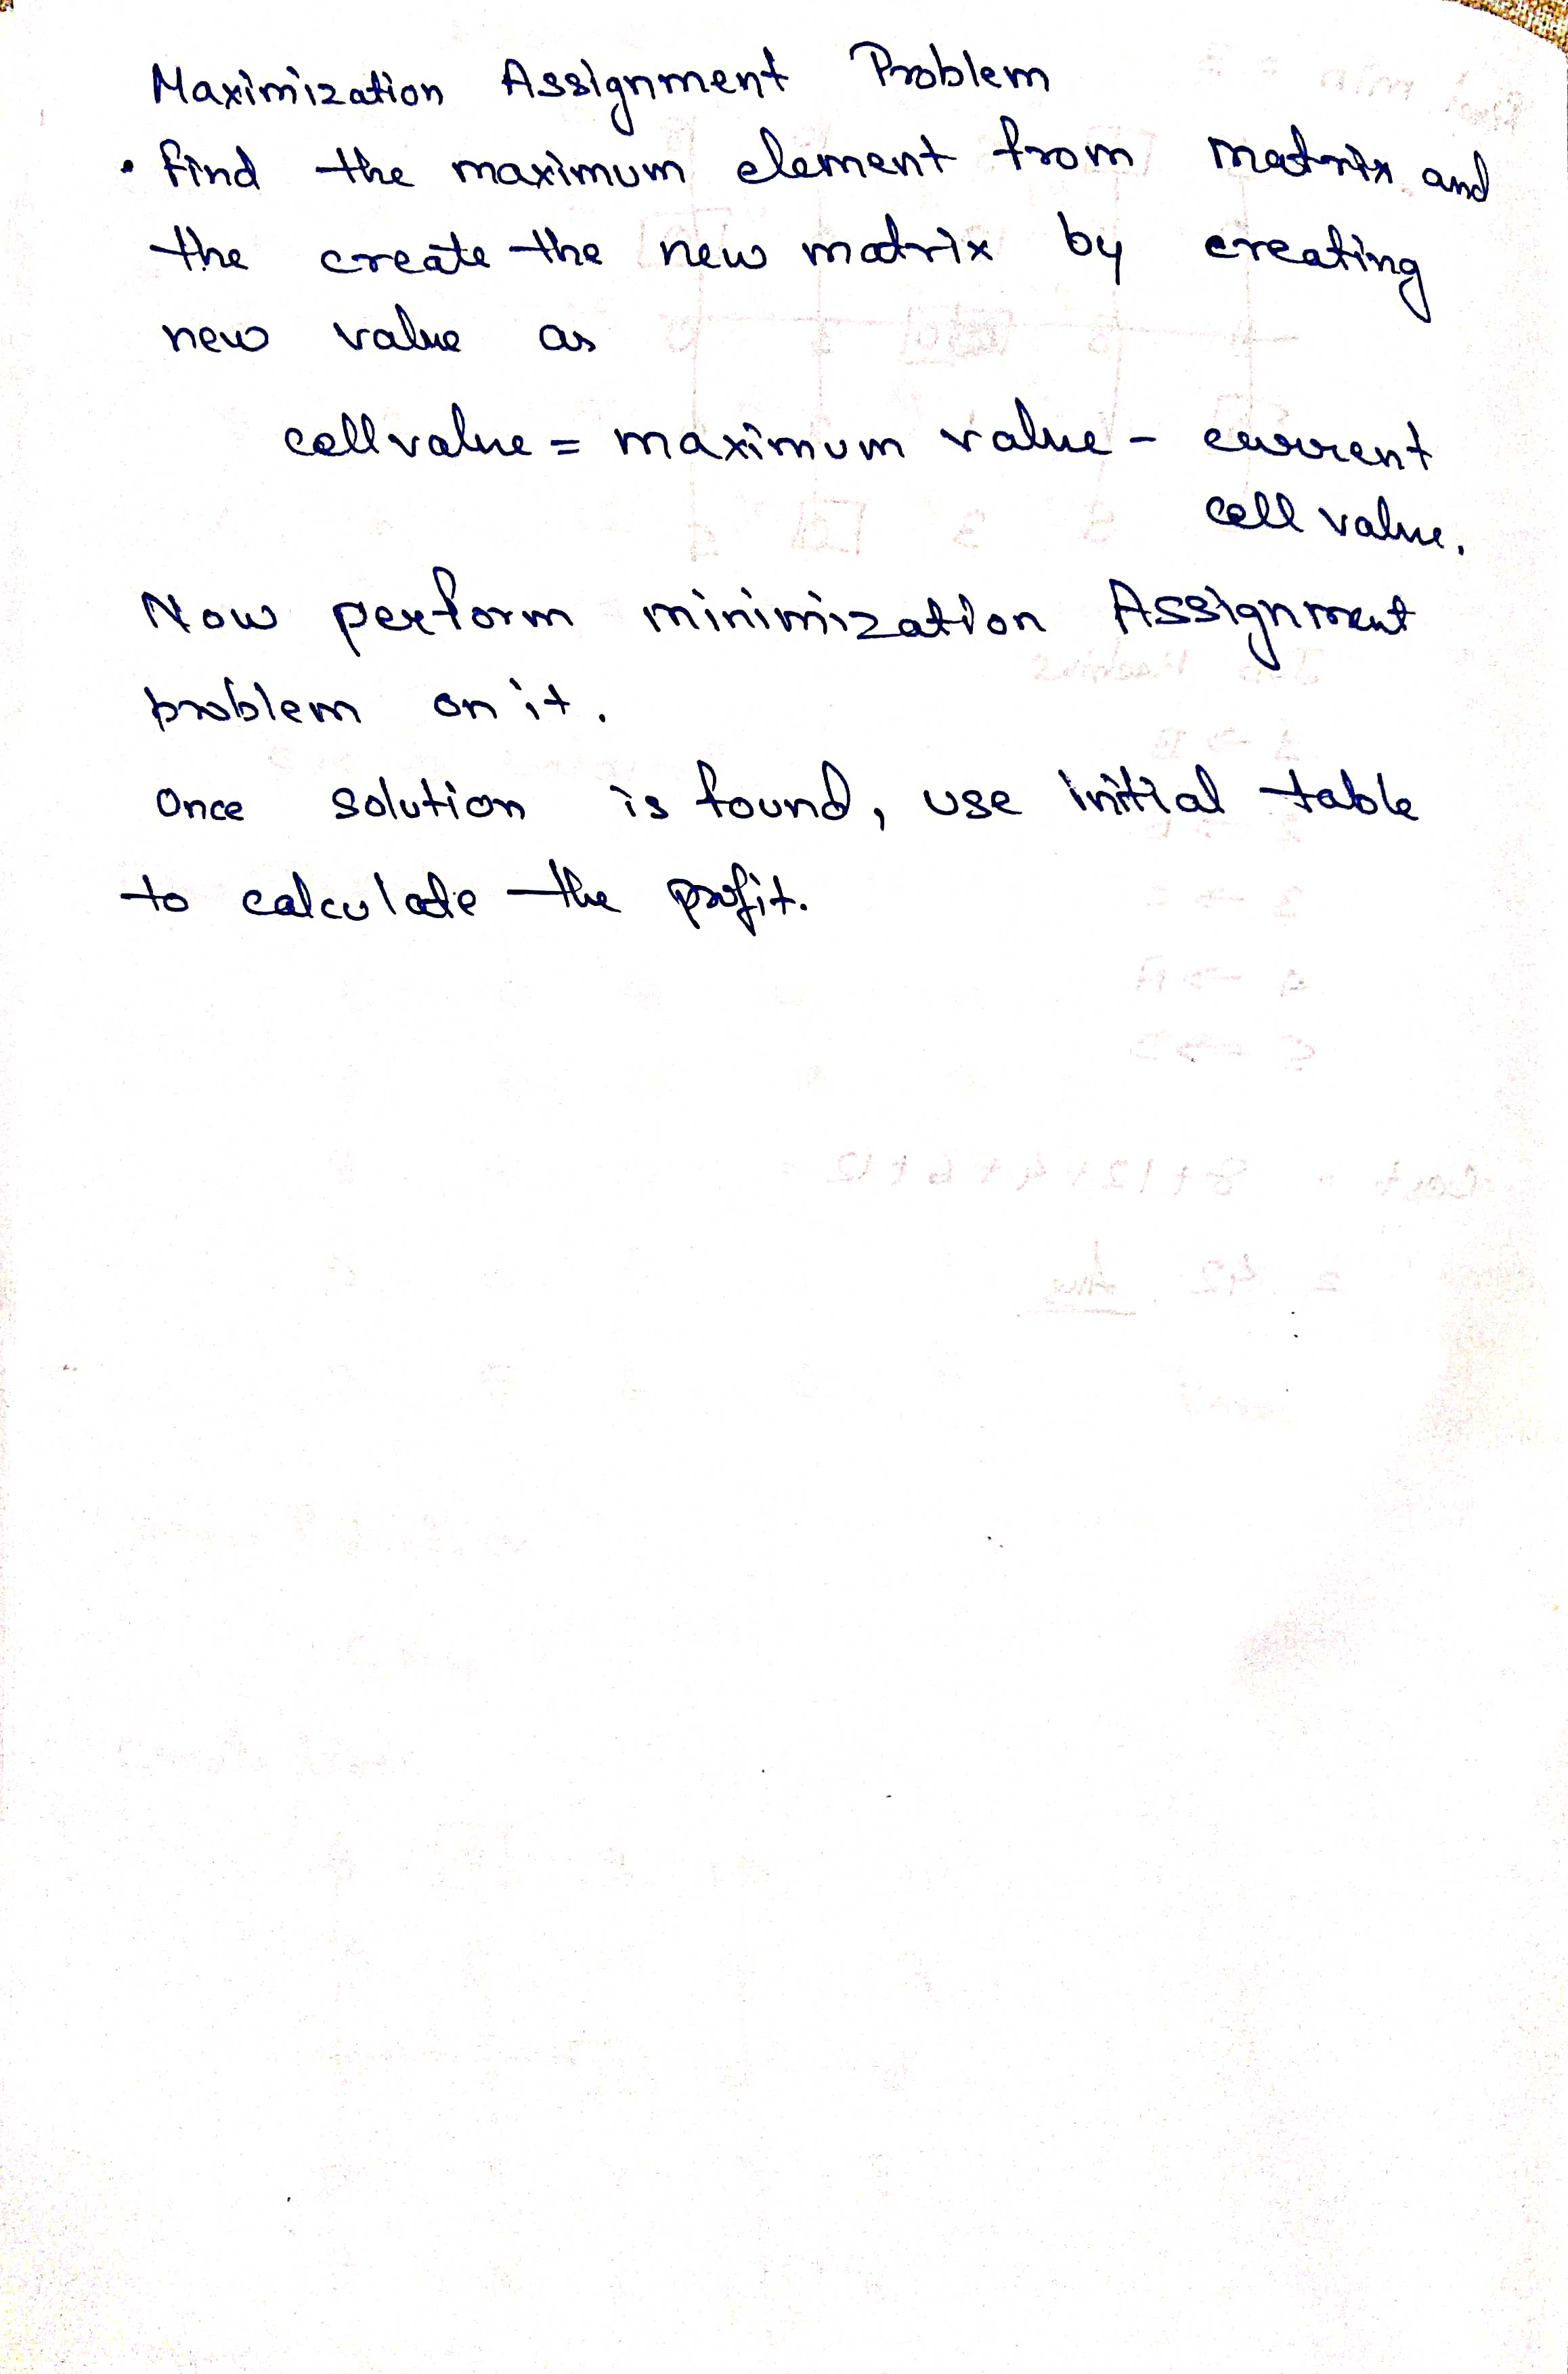 Maximization Assignment Problem
• find the maximum element from matrix and
the create the new matrix by creating
new value as
cell value = maximum value - current
cell value.
Now perform minimization Assignment
problem on it.
Once solution is found, use initial table
to calculate the profit.